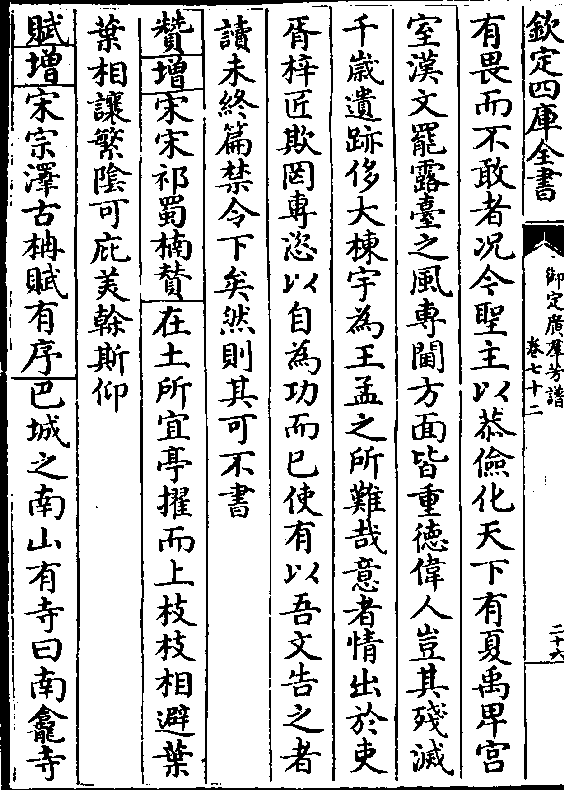 欽定四庫全書
御定廣羣芳譜
卷七十二
二十六
有畏而不敢者况今聖主以恭儉化天下有夏禹卑宮
室漢文罷露臺之風專閫方面皆重德偉人豈其殘滅
千歲遺跡侈大棟宇為王孟之所難哉意者情出於吏
胥梓匠欺罔專恣以自為功而已使有以吾文告之者
讀未終篇禁令下矣然則其可不書
贊增宋宋祁蜀楠贊在土所宜亭擢而上枝枝相避葉
葉相讓繁陰可庇美榦斯仰
賦增宋宗澤古柟賦有序巴城之南山有寺曰南龕寺